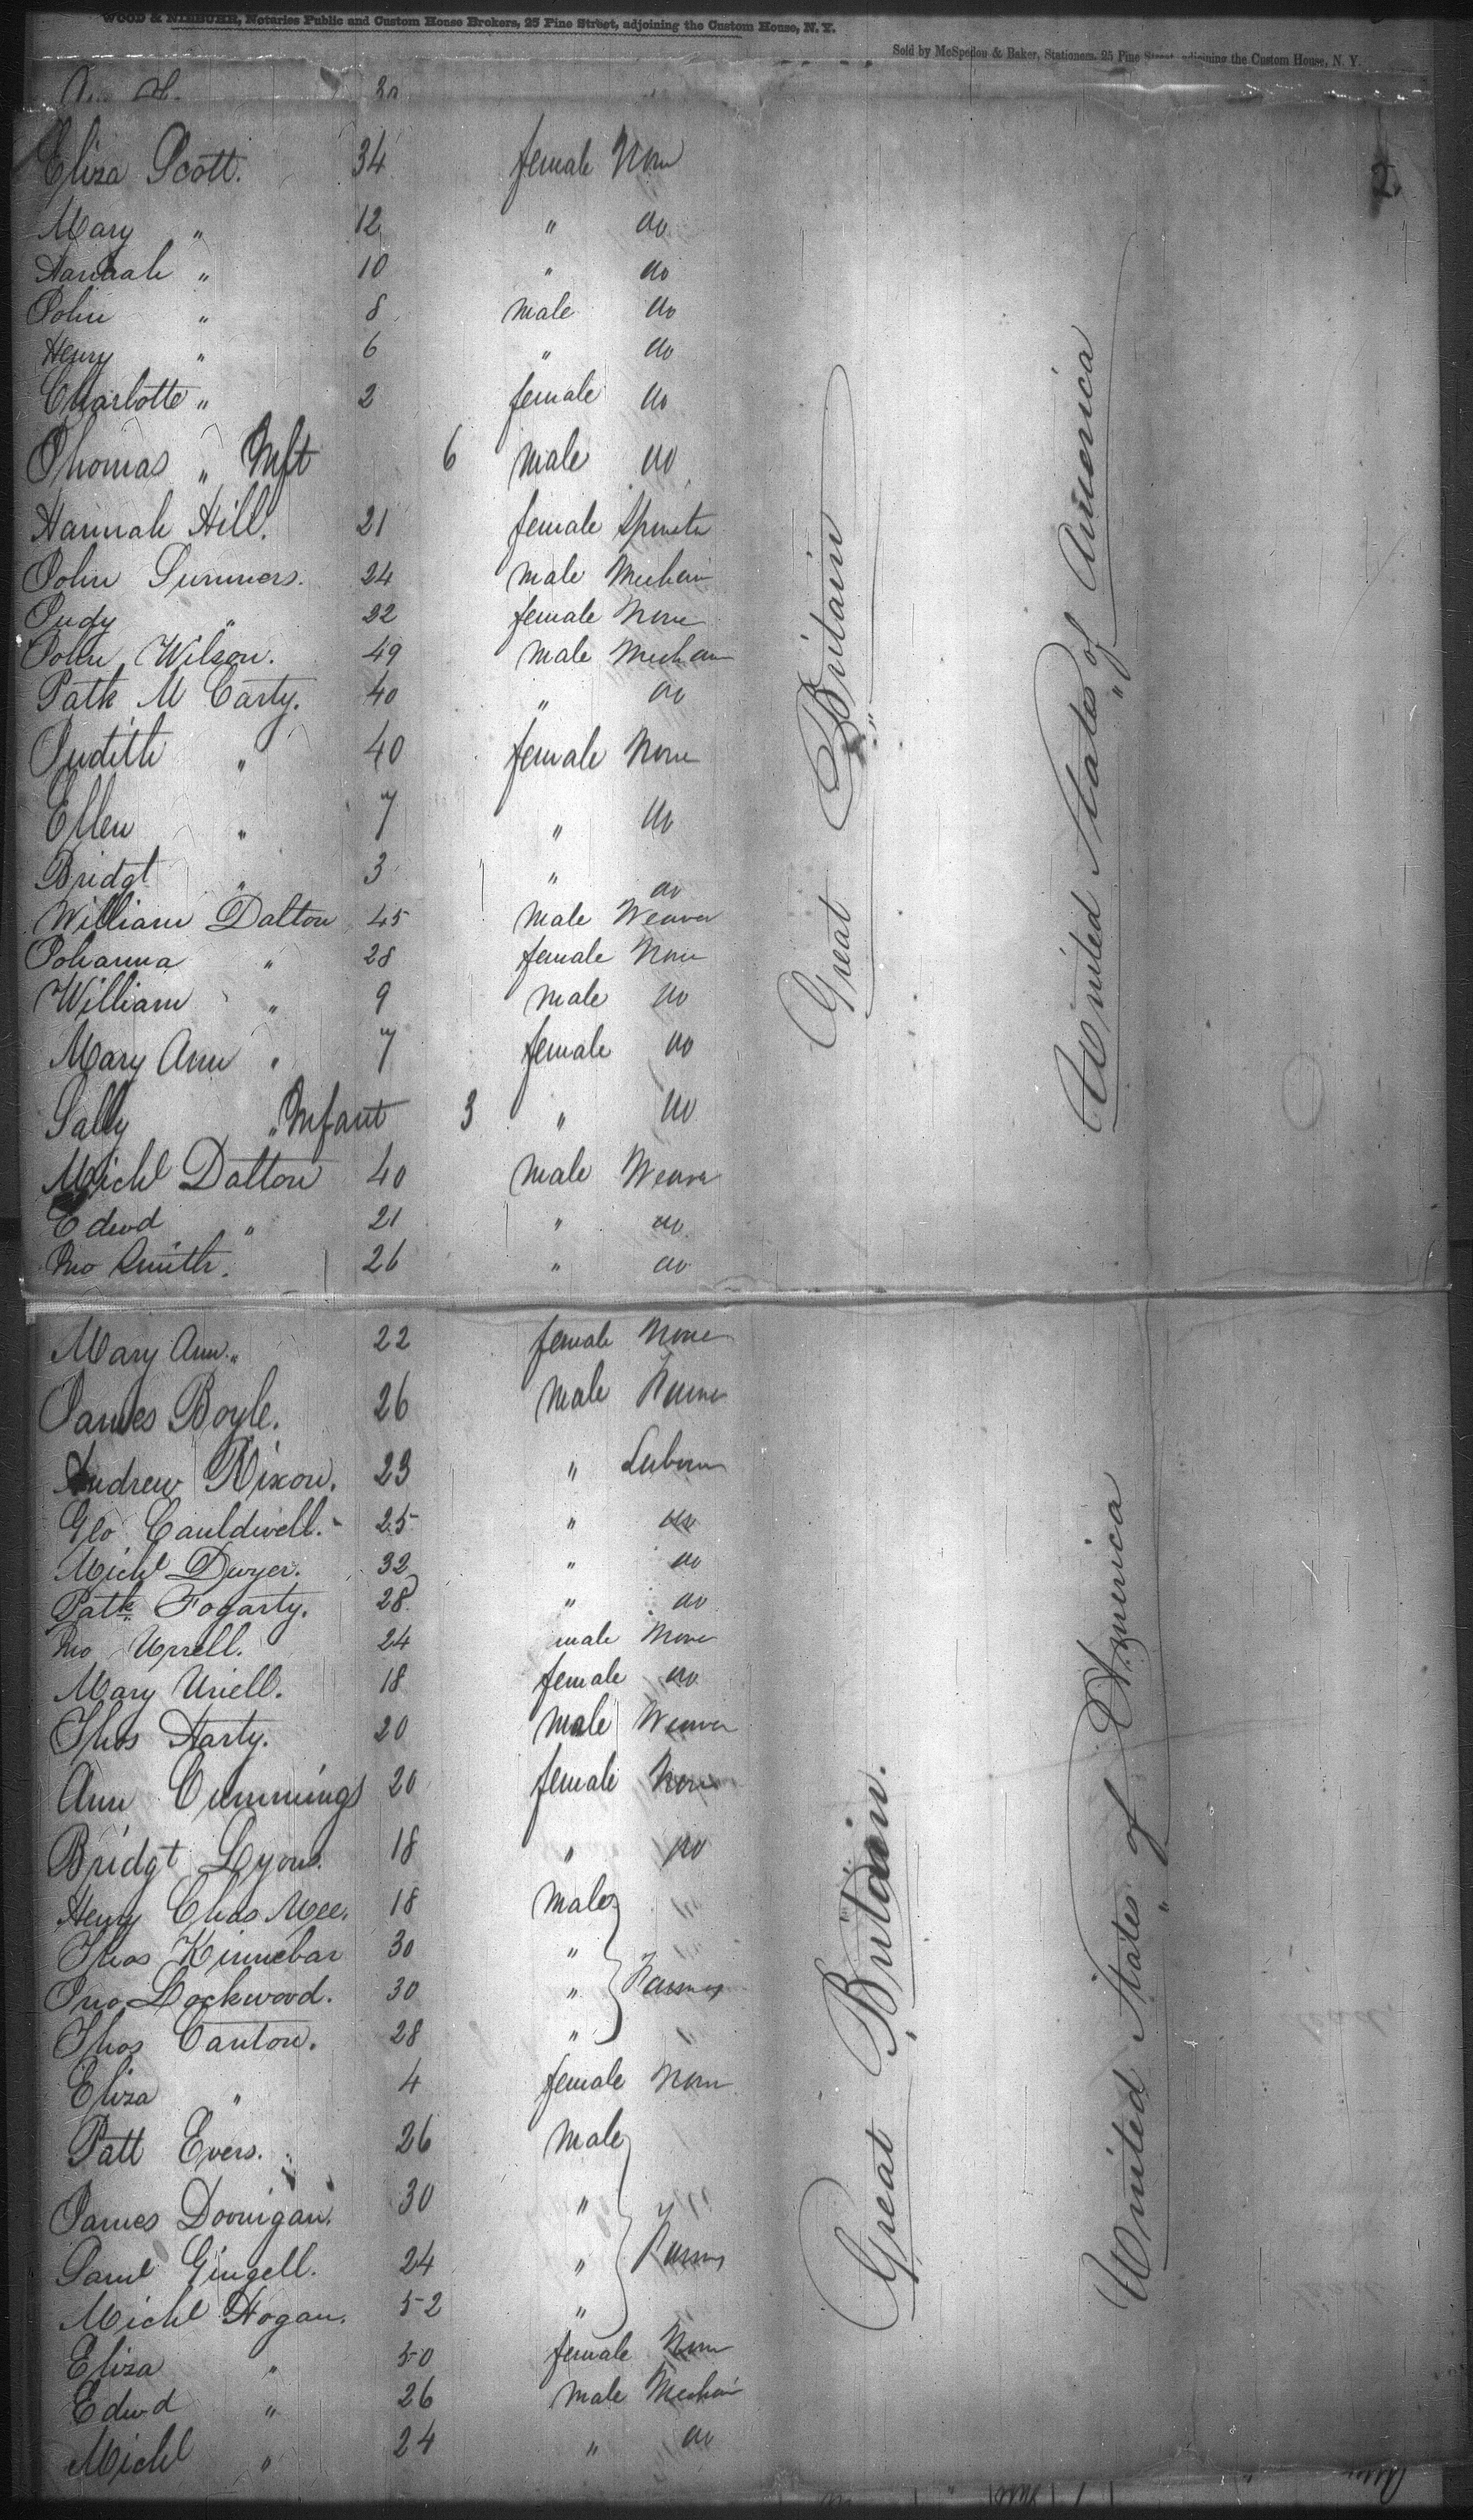 WOOD & NIEBUHR, Notaries Public and Custom House Brokers, 25 Pine Street, adjoining the Custom House, N. Y.
Sold by McSpedon & Baker, Stationers, 25 Pine Street adjoining the Custom House, N. Y.
2
Eliza Scott. 34 female None
Mary " 12 " do
Hannah " 10 " do
John " 8 male do
Henry " 6 " do
Charlotte " 2 female do
Thomas " Inft 6 male do
Hannah Hill. 21 female Spinster
John Summers. 24 male Mechanic
Judy " 22 female None
John Wilson. 49 male Mechanic
Patk McCarty. 40 " do
Judith " 40 female None
Ellen " 7 " do
Bridgt " 3 " do
William Dalton 45 male Weaver
Johanna " 28 female None
William " 9 male do
Mary Ann " 7 female do
Sally " Infant 3 " do
Michl Dalton 40 male Weaver
Edwd " 21 " do
Jno Smith. 26 " do
Great Britain
"
United States of America
"
Mary Ann " 22 female None
James Boyle. 26 male Farmer
Andrew Nixon. 23 " Laborer
Geo Cauldwell. 25 " do
Michl Dwyer. 32 " do
Patk Fogarty. 28 " do
Jno 24 male None
Mary Uriell. 18 female do
Thos Harty. 20 male Weaver
Ann Cummings 20 female None
Bridgt Lyons. 18 " do
Henry Chas Mee. 18 male
Thos Kinnebar 30 "
Jno Lockwood. 30 " Farmers
Thos Canton. 28 "
Eliza " 4 female None
Patt Evers. 26 male
James Doonigan. 30 "
Saml Gingell. 24 " Farmers
Michl Hogan. 52 "
Eliza " 50 female None
Edwd " 26 male Mechanic
Michl " 24 " do
Great Britain.
"
United States of America
"